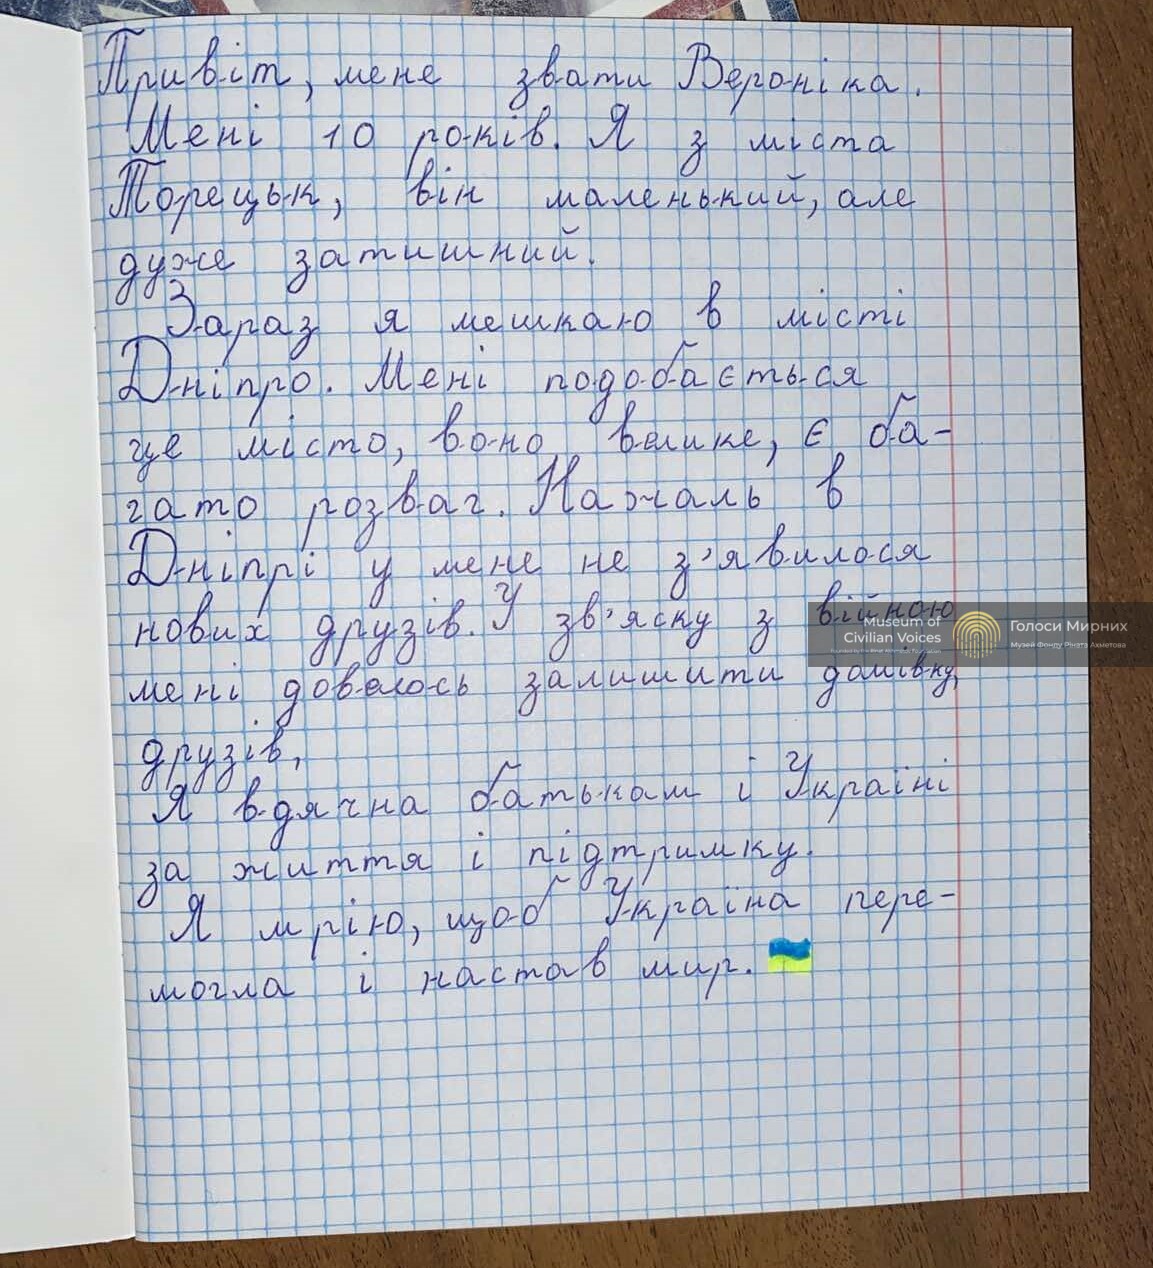 Привіт, мене звати Вероніка.
Мені 10 років. Я з міста
Торецьк, він маленький, але
дуже затишний.
Зараз я мешкаю в місті
Дніпро. Мені подобається
це місто, воно велике, є ба-
гато розваг. На жаль в
Дніпрі у мене не з'явилося
нових друзів. У зв'яску з війною
мені довелось залишити домівку,
друзів,
Я вдячна батькам і Україні
за життя і підтримку.
Я мрію, щоб Україна пере-
могла і настав мир.
Museum of
Civilian Voices
Founded by the Rinat Akhmetov Foundation
Голоси Мирних
Музей Фонду Ріната Ахметова